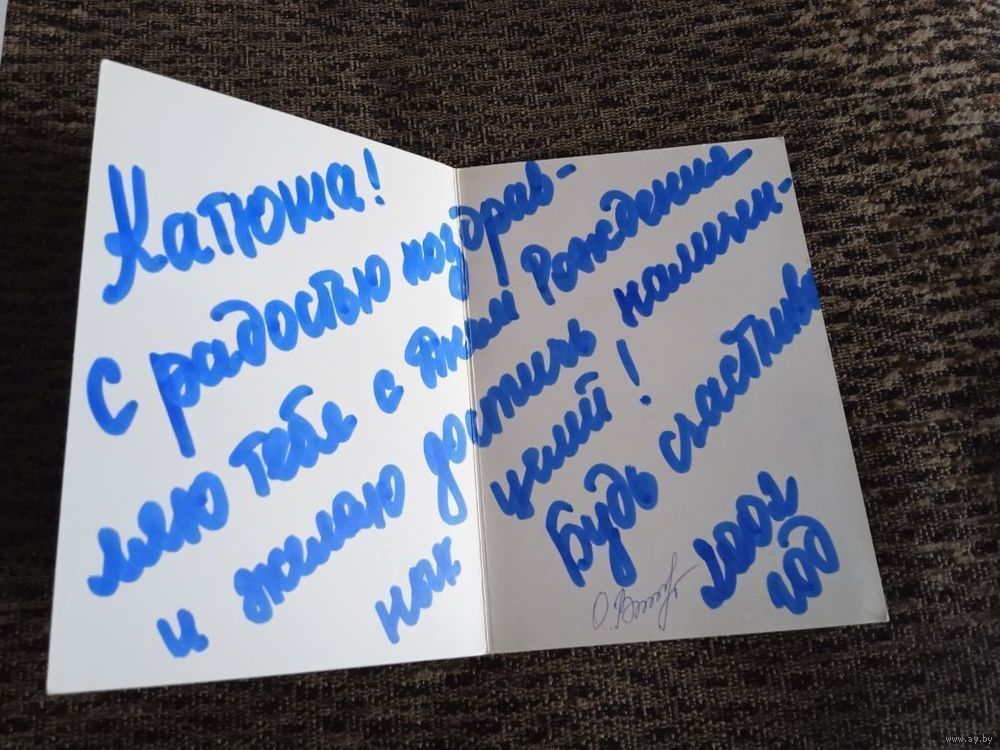 Катюша!
С радостью поздрав-
ляю тебя с Днём Рождения
и желаю достичь намечен-
ных целей!
Будь счастлива
2002
год
www.ay.by